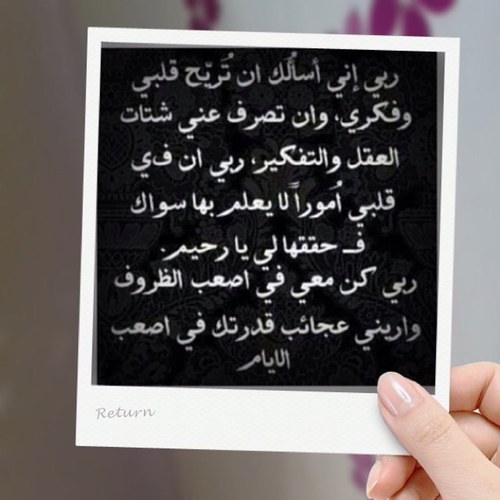 ربي إني أسألُك ان تُريّح قلبي
وفكري، وان تصرف عني شتات
العقل والتفكير، ربي ان في
قلبي أموراً لا يعلم بها سواك
فـ حققها لي يا رحيم.
ربي كن معي في اصعب الظروف
واريني عجائب قدرتك في اصعب
الايام
Return